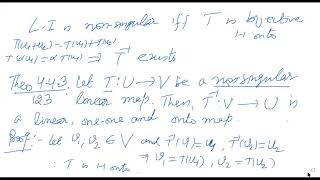 L.I is non-singular iff T is bijective
H onto
T(u₁+u₂) = T(u₁)+T(u₂)
T(αu₁) = αT(u₁) ⇒ T⁻¹ exists
Theo 4.4.3: Let T: U → V be a nonsingular
123 linear map. Then, T⁻¹: V → U is
a linear, one-one and onto map.
Proof:- Let v₁, v₂ ∈ V and T⁻¹(v₁) = u₁, T⁻¹(v₂) = u₂
∴ T is H onto ⇒ v₁ = T(u₁), v₂ = T(u₂)